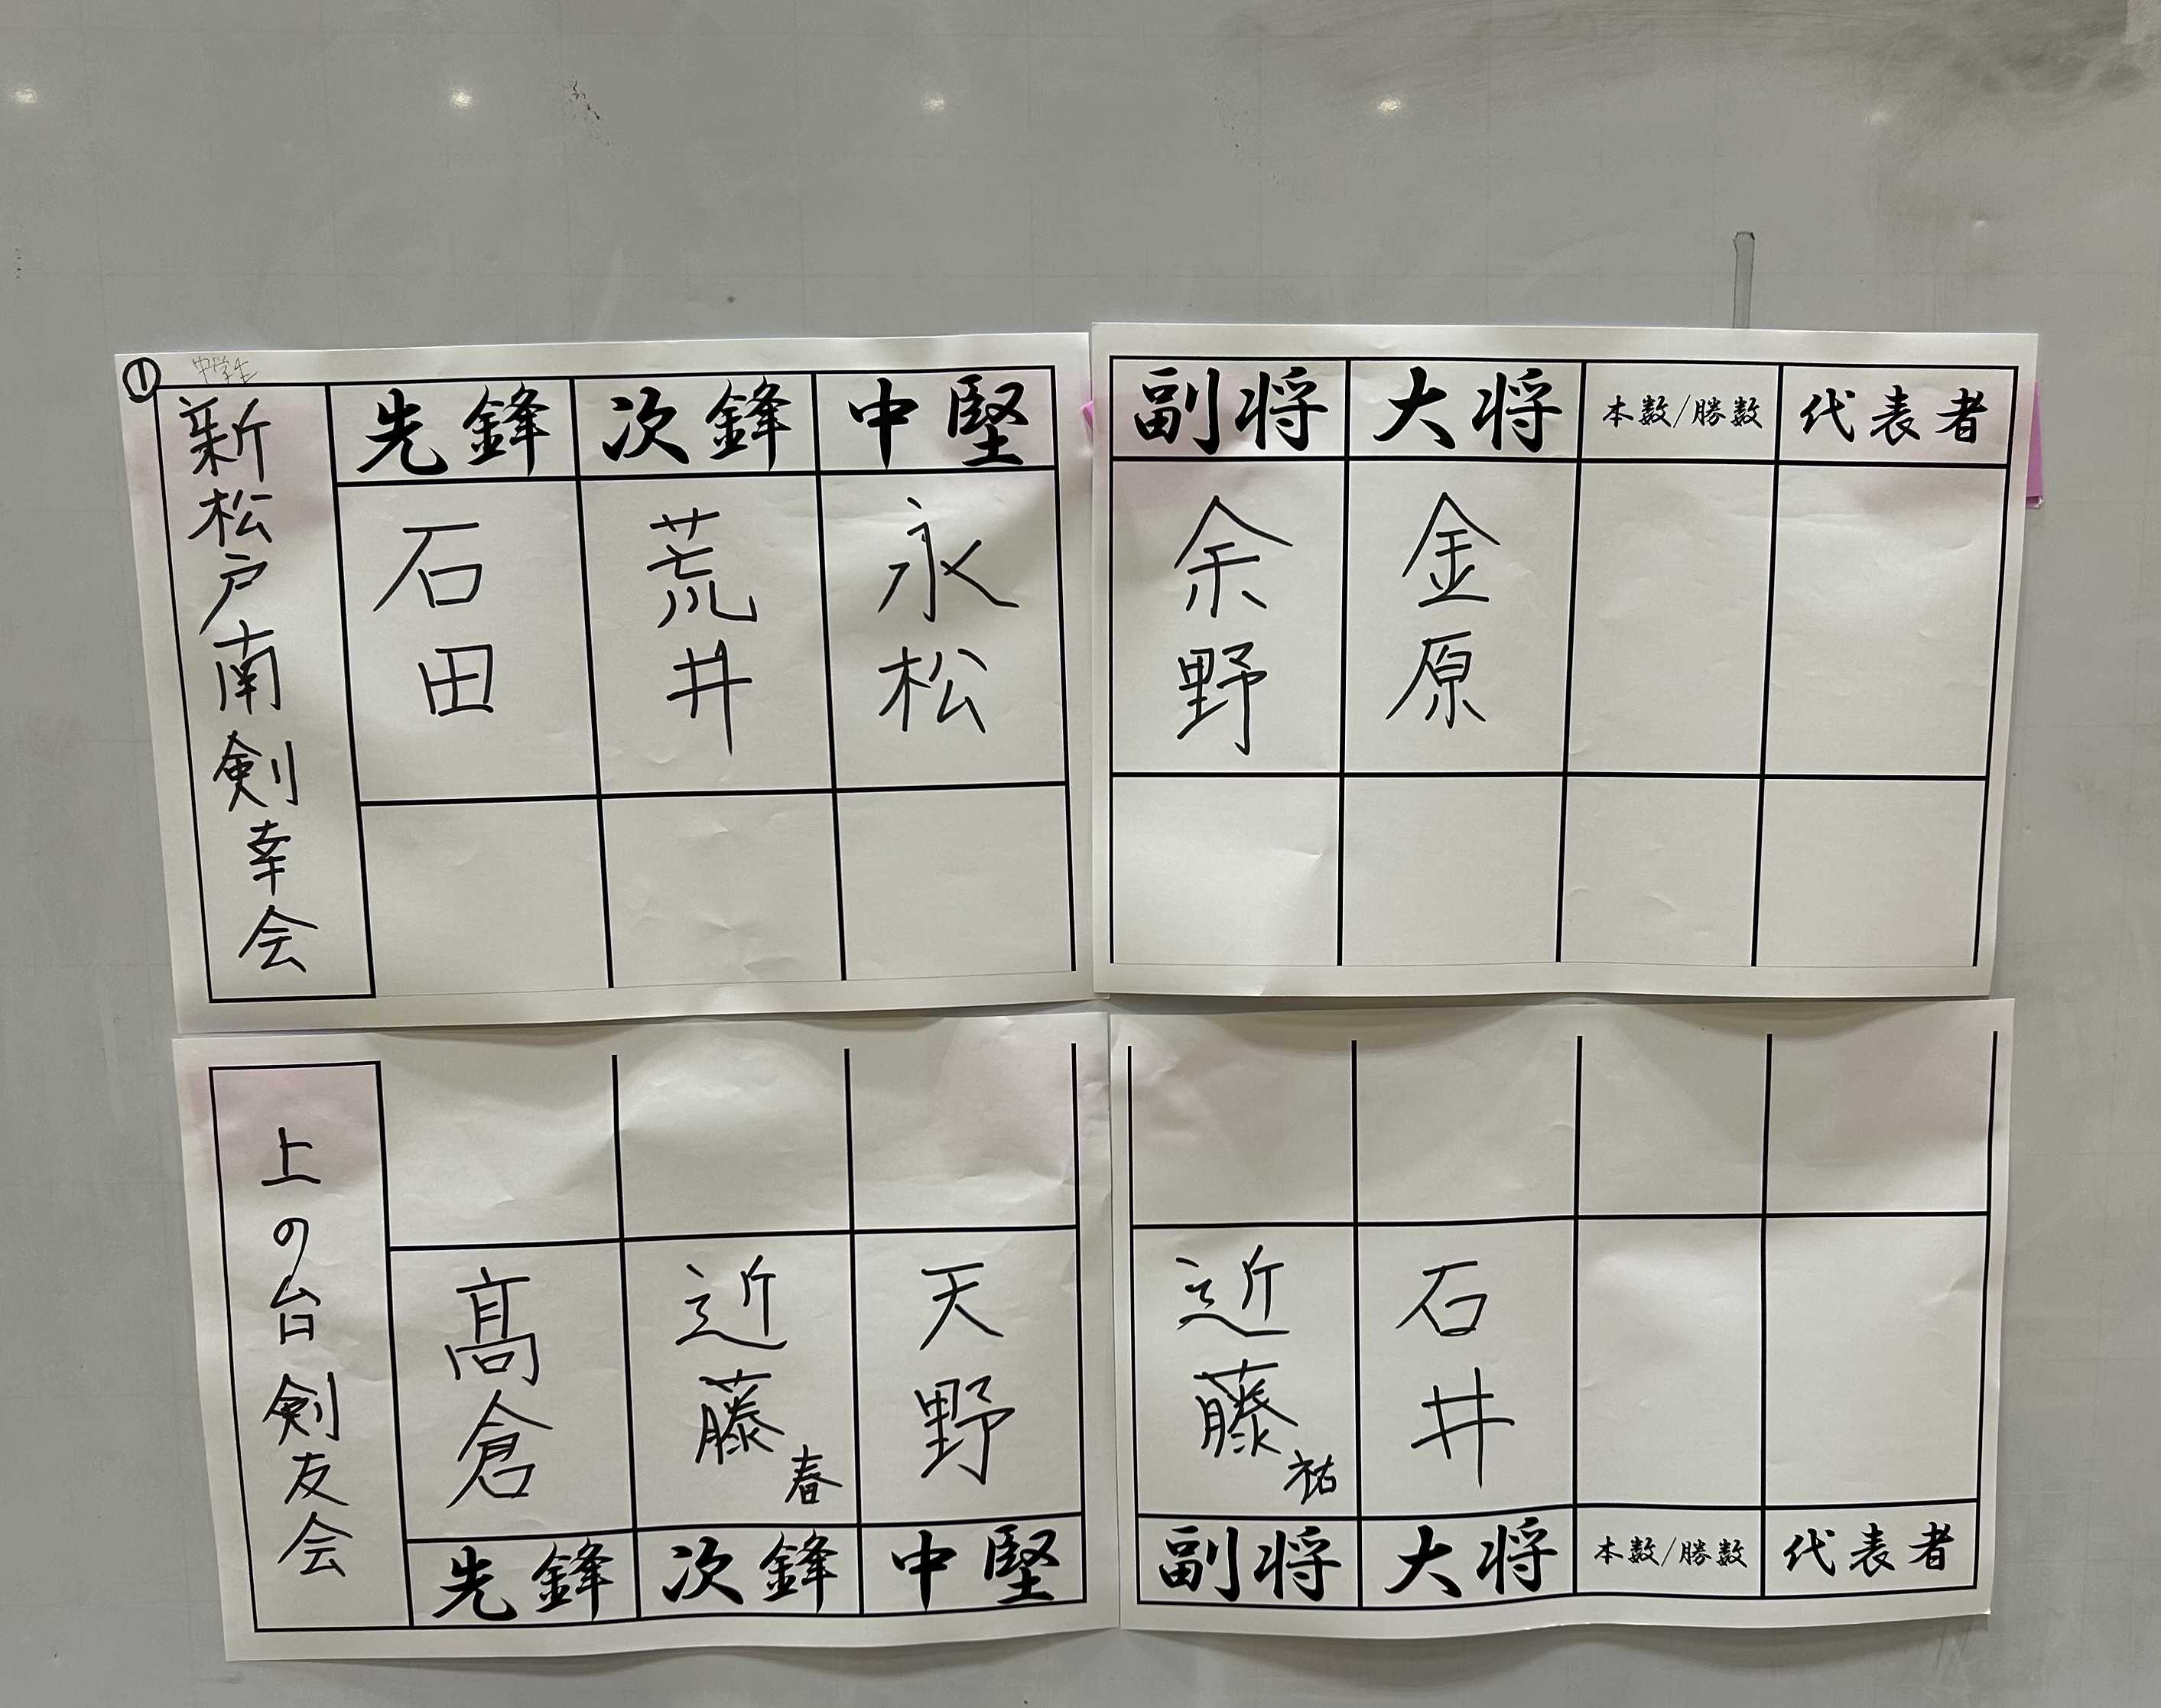 ① 中学生
新松戸南剣幸会
先鋒 次鋒 中堅 副将 大将 本数/勝数 代表者
石田 荒井 永松 余野 金原
上の台剣友会
髙倉 近藤春 天野 近藤祐 石井
先鋒 次鋒 中堅 副将 大将 本数/勝数 代表者